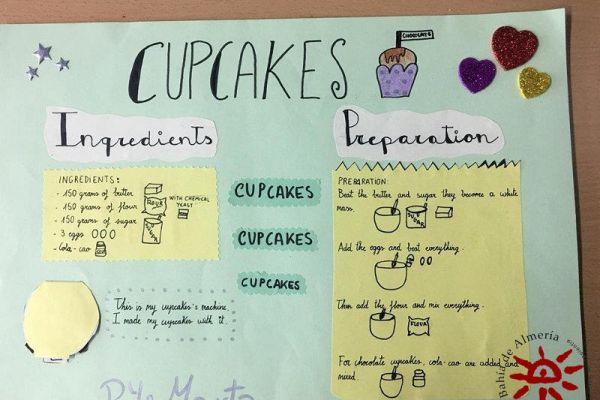 CUPCAKES
CHOCOLATE
Ingredients
Preparation
INGREDIENTS:
- 150 grams of butter
- 150 grams of flour
WITH CHEMICAL
YEAST
- 150 grams of sugar
- 3 eggs
- Cola-cao
FLOUR
SUGAR
CUPCAKES
CUPCAKES
CUPCAKES
This is my cupcake's machine.
I made my cupcakes with it.
PREPARATION:
Beat the butter and sugar they become a white
mass.
SUGAR
Add the eggs and beat everything.
Then add the flour and mix everything.
FLOUR
For chocolate cupcakes, cola-cao are added and
mixed.
Bahía de Almería